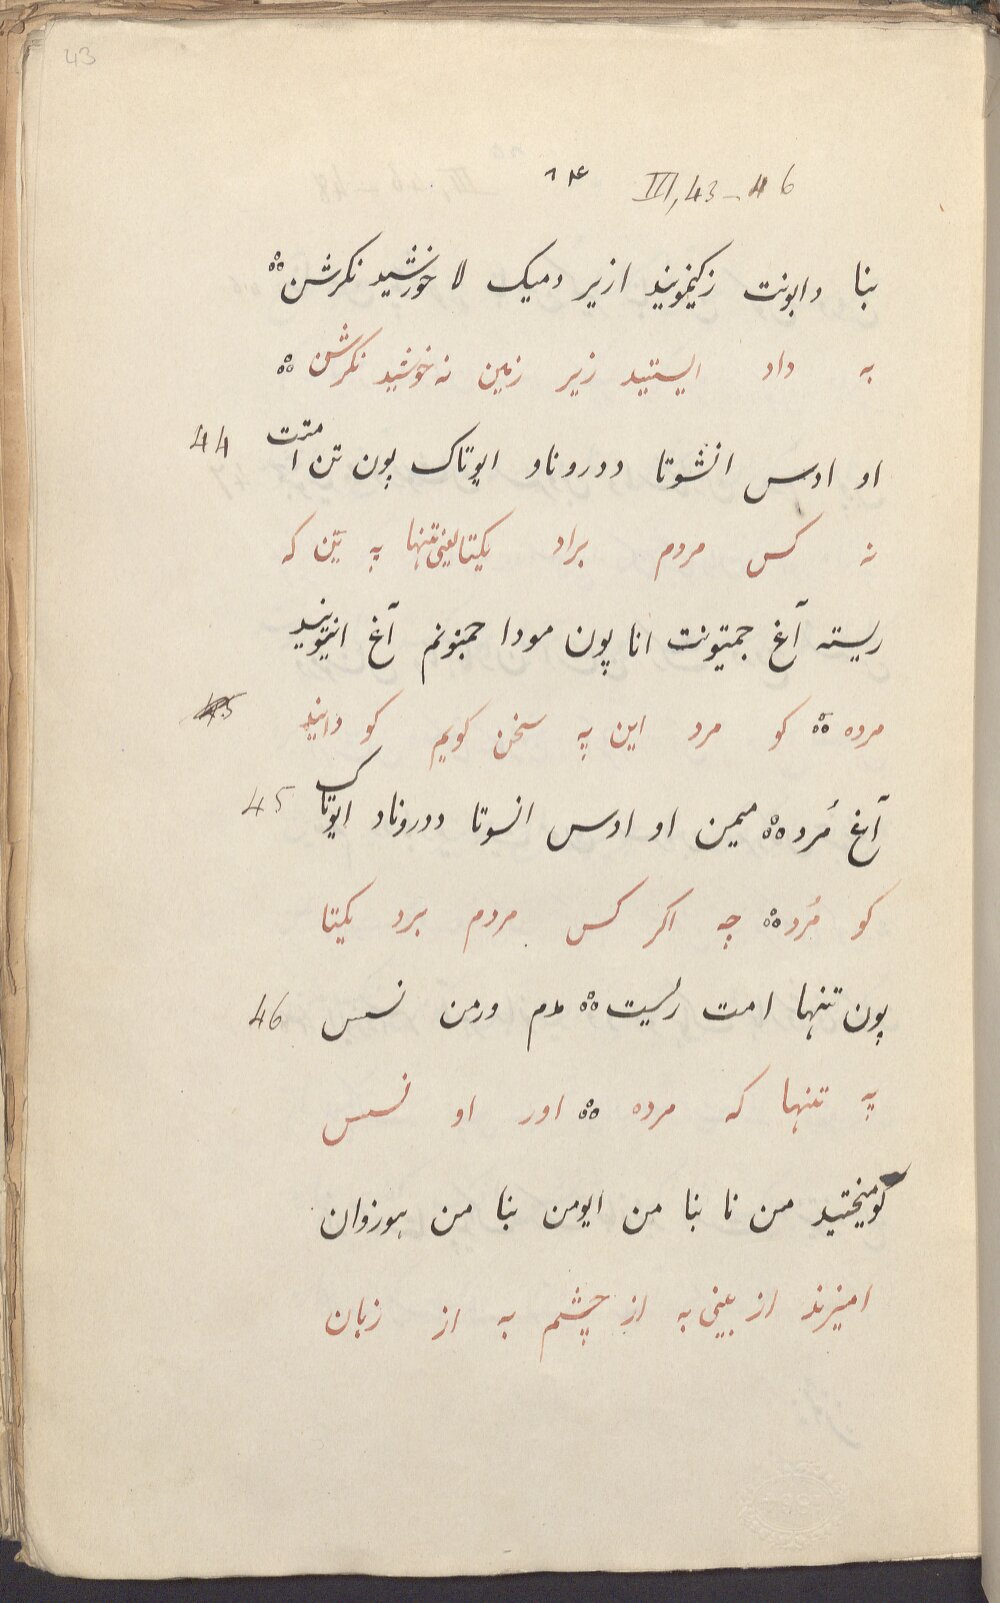 43
۸۴ III, 43-46
بنا دابونت زکیموند ازیر دمیک لا خورشید نکرشن ؞
به داد ایستید زیر زمین نه خورشید نکرشن ؞
او ادس انشوتا ددروناد ایوتاک پون تن امتت 44
نه کس مردم براد یکتا یعنی تنها به تن که
ریسته آغ جمتیونت انا پون مودا جمنونم آغ
مرده ؞ کو مرد این په سخن کویم کو دانید 45
آغ مُرد ؞ میمن او ادس انسوتا ددروناد ایوتاک 45
کو مُرد ؞ چه اکر کس مردم برد یکتا
پون تنها امت ریست ؞ مدم ورمن نسس 46
په تنها که مرده ؞ اور او نسس
کومیختید من نا بنا من ایومن بنا من هوزوان
امیزند از بینی به از چشم به از زبان